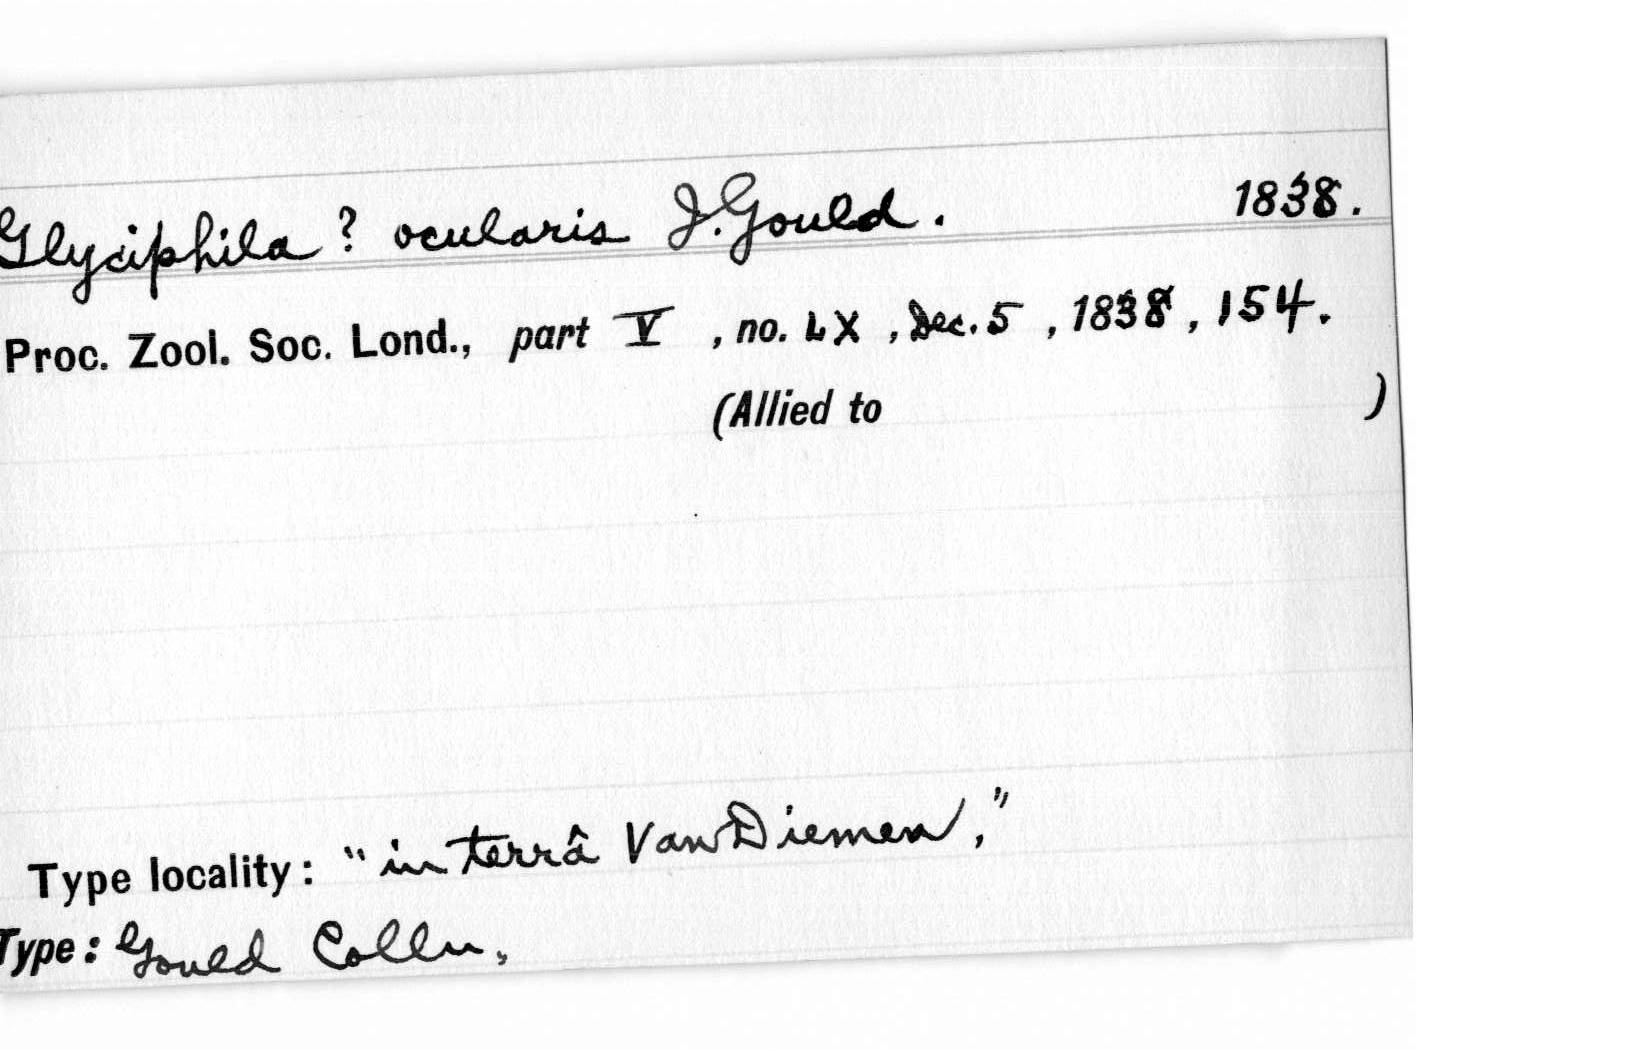 Glyciphila ? ocularis J. Gould. 1838.
Proc. Zool. Soc. Lond., part V, no. LX, Dec. 5, 1838, 154.
(Allied to )
Type locality: "in terrâ Van Diemen,"
Type: Gould Colln,